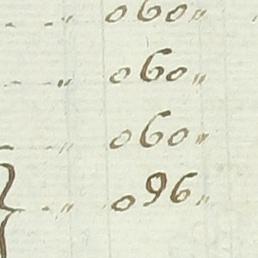 " 060 "
" 060 "
" 060 "
" 096 "